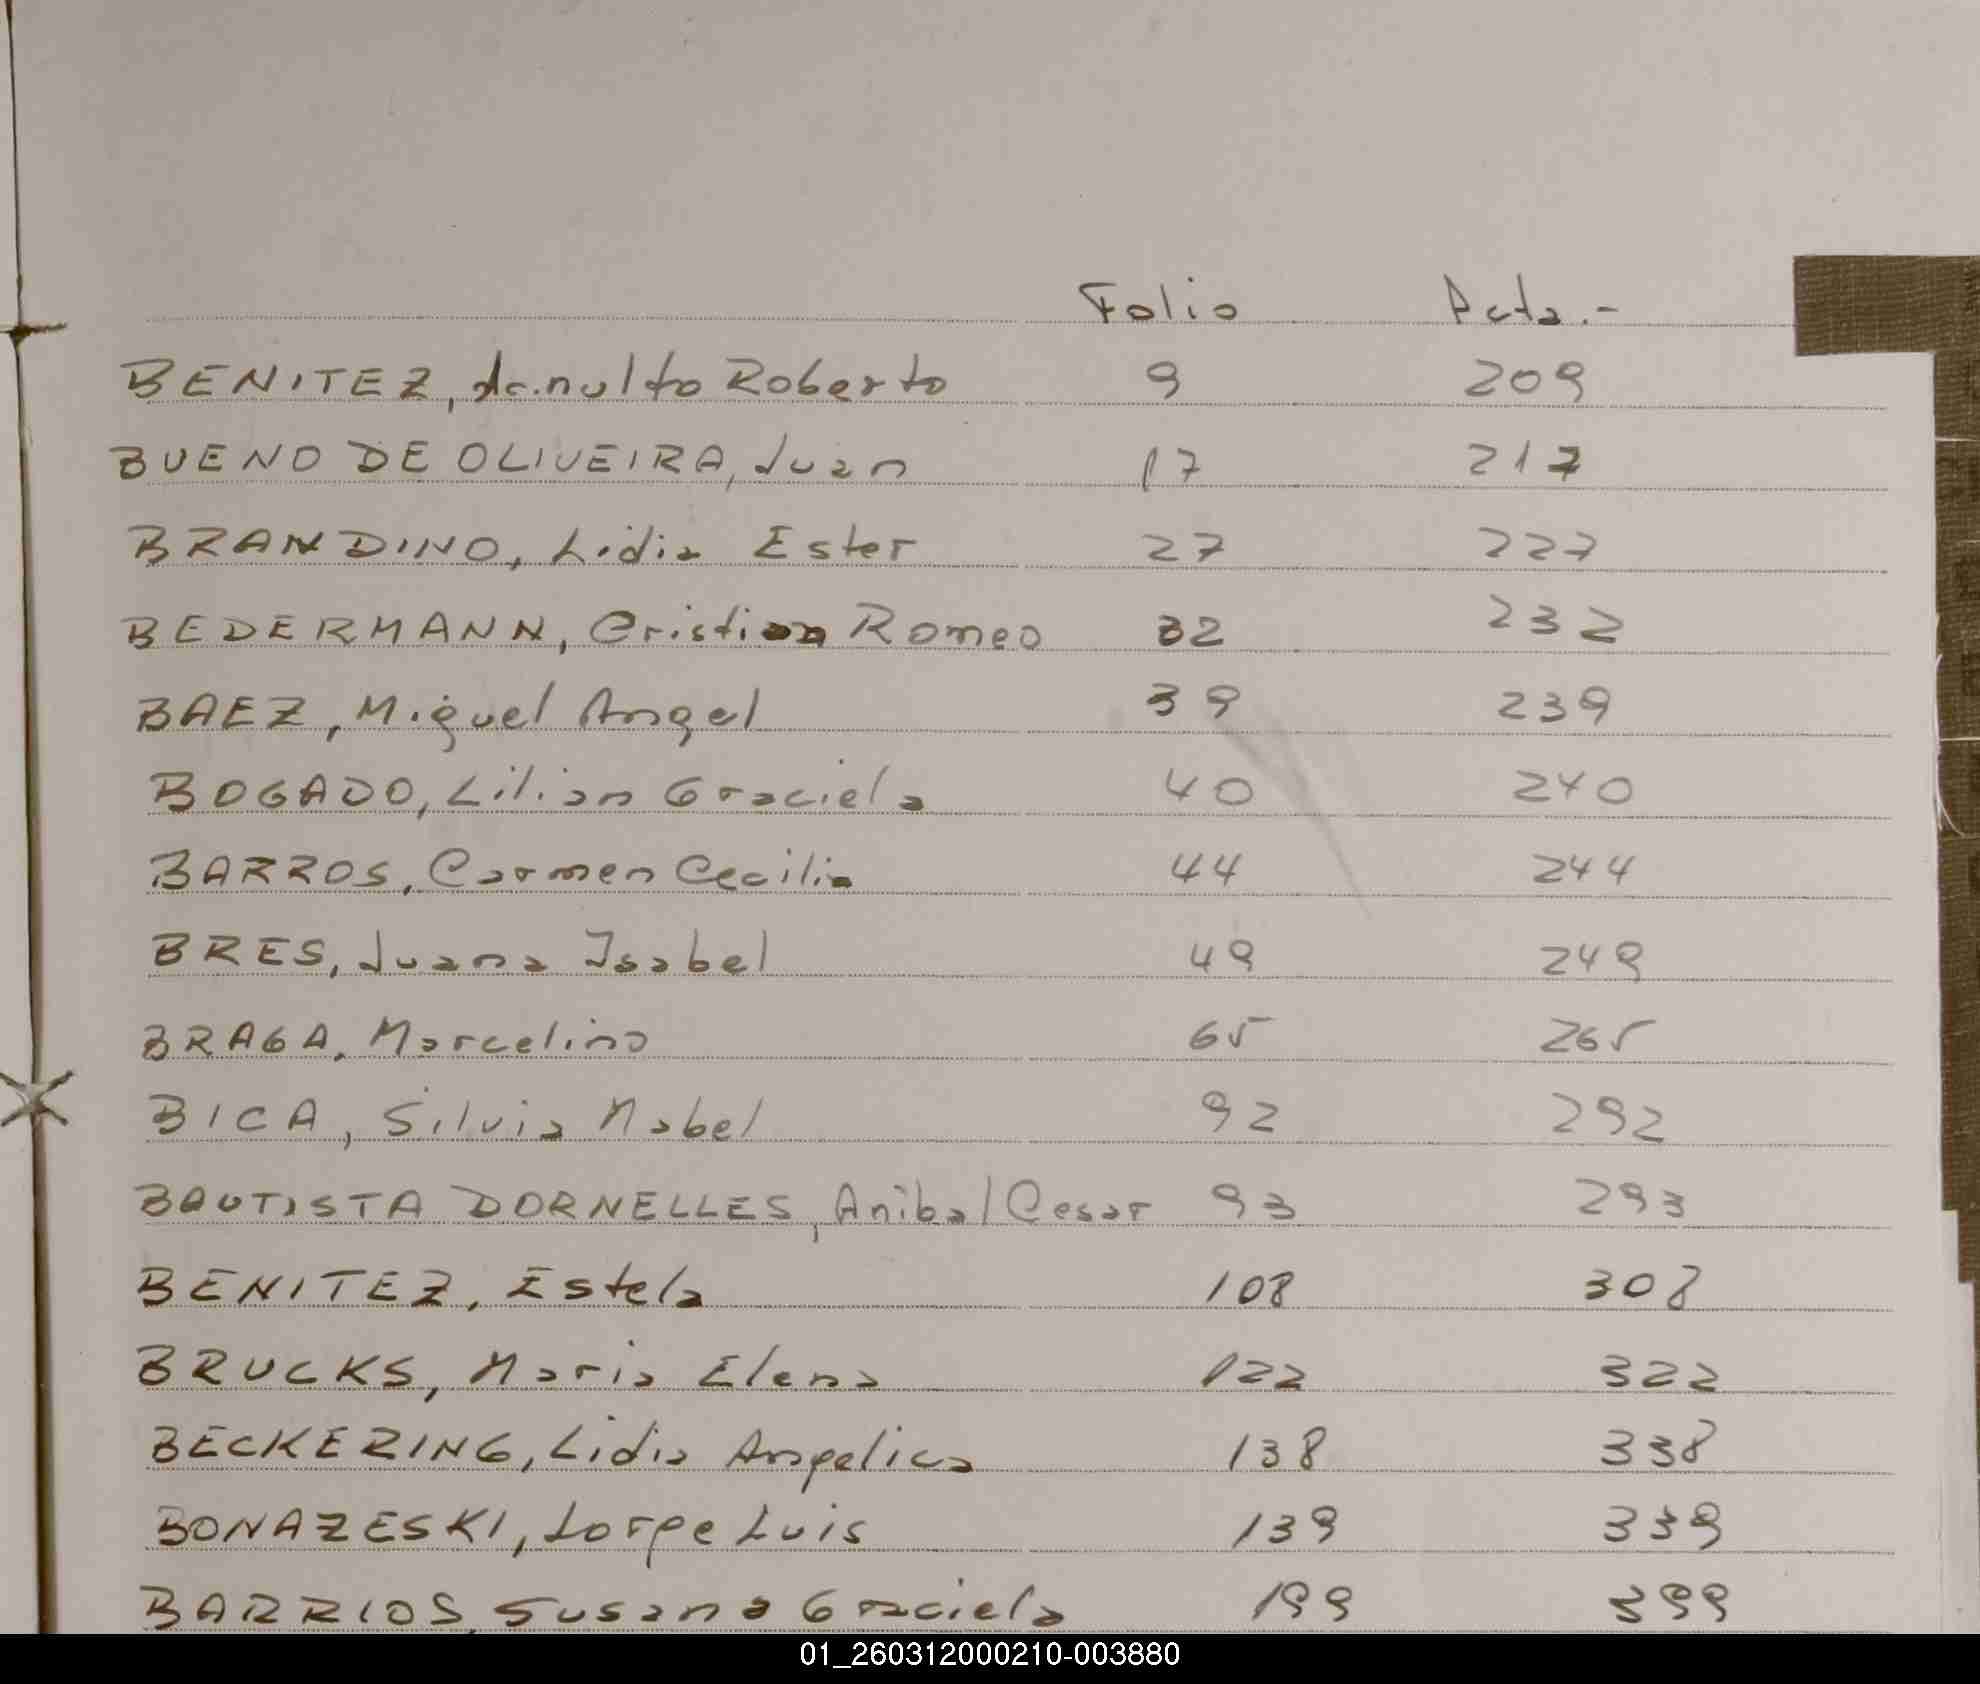 Folio Acta.-
BENITEZ, Arnulfo Roberto 9 209
BUENO DE OLIVEIRA, Juan 17 217
BRANDINO, Lidia Ester 27 227
BEDERMANN, Cristian Romeo 32 232
BAEZ, Miguel Angel 39 239
BOGADO, Lilian Graciela 40 240
BARROS, Carmen Cecilia 44 244
BRES, Juana Isabel 49 249
BRAGA, Marcelino 65 265
BICA, Silvia Mabel 92 292
BAUTISTA DORNELLES, Anibal Cesar 93 293
BENITEZ, Estela 108 308
BRUCKS, Maria Elena 122 322
BECKERING, Lidia Angelica 138 338
BONAZESKI, Jorge Luis 139 339
BARRIOS, Susana Graciela 199 399
01_260312000210-003880